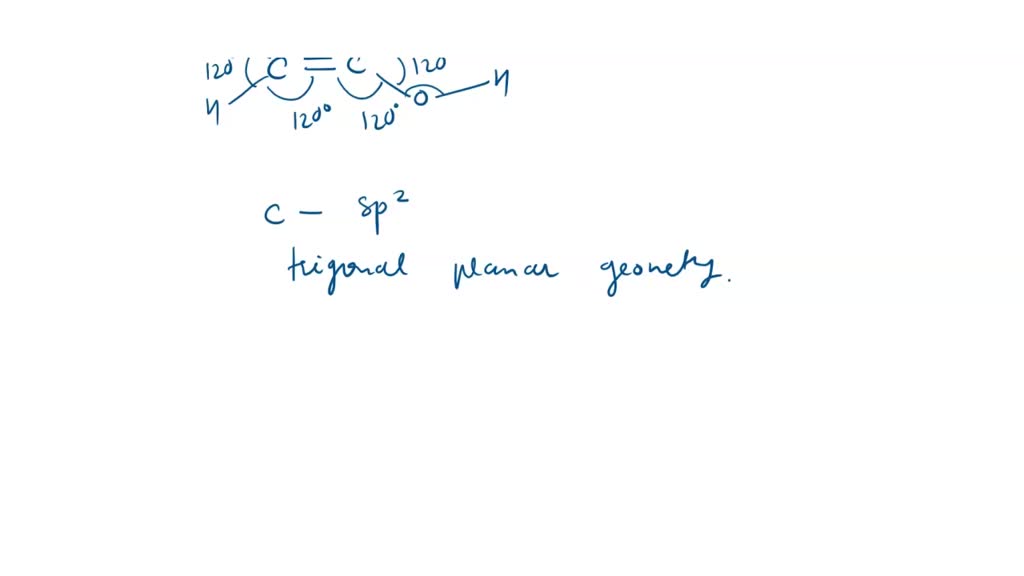 120 C = C 120
H O H
120° 120°
C - sp²
trigonal planar geometry.